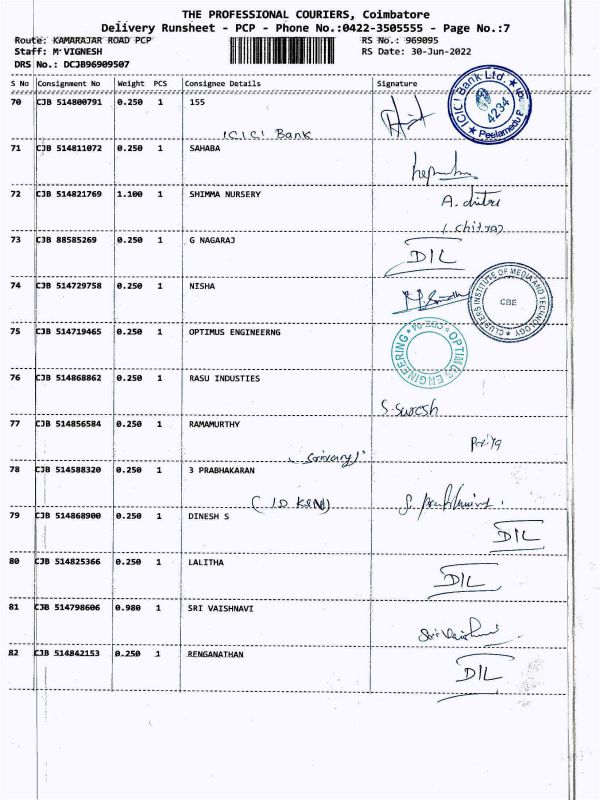 THE PROFESSIONAL COURIERS, Coimbatore
Delivery Runsheet - PCP - Phone No.:0422-3505555 - Page No.:7
Route: KAMARAJAR ROAD PCP RS No.: 969095
Staff: M VIGNESH RS Date: 30-Jun-2022
DRS No.: DCJB96909507
S No Consignment No Weight PCS Consignee Details Signature
70 CJB 514800791 0.250 1 155
ICICI Bank
ICICI Bank Ltd. 4234 Peelamedu
71 CJB 514811072 0.250 1 SAHABA
72 CJB 514821769 1.100 1 SHIMMA NURSERY
A.
(chitra)
73 CJB 88585269 0.250 1 G NAGARAJ
DIL
74 CJB 514729758 0.250 1 NISHA
CLUSTERS INSTITUTE OF MEDIA AND TECHNOLOGY CBE
75 CJB 514719465 0.250 1 OPTIMUS ENGINEERNG
OPTIMUS ENGINEERING
76 CJB 514868862 0.250 1 RASU INDUSTIES
S. Suresh
77 CJB 514856584 0.250 1 RAMAMURTHY
Priya
78 CJB 514588320 0.250 1 3 PRABHAKARAN
79 CJB 514868900 0.250 1 DINESH S
DIL
80 CJB 514825366 0.250 1 LALITHA
DIL
81 CJB 514798606 0.980 1 SRI VAISHNAVI
82 CJB 514842153 0.250 1 RENGANATHAN
DIL